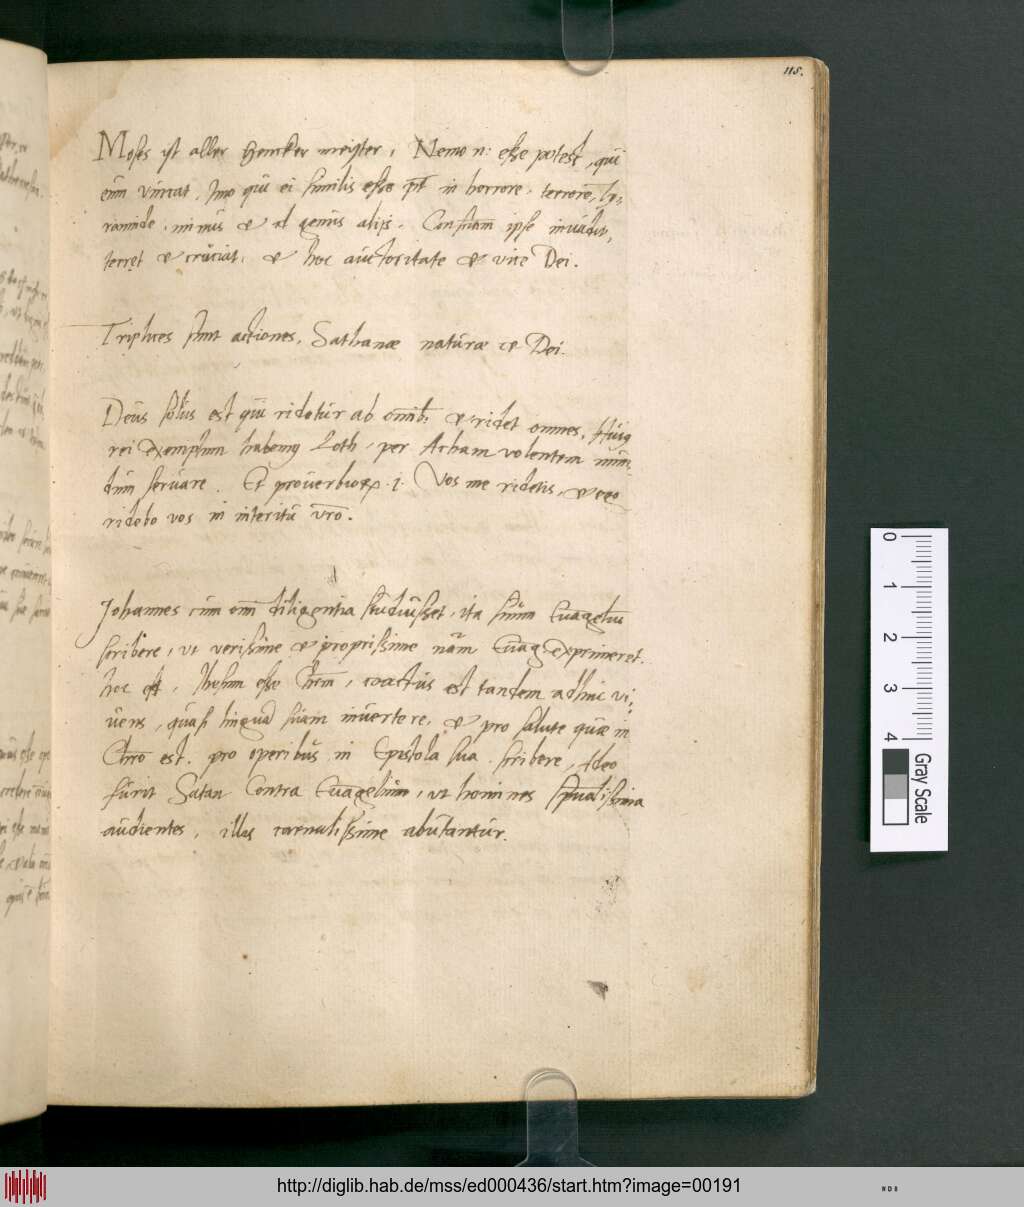 115.
Moses ist aller Hencker meister, Nemo n: esse potest, qui
eum vincat, Imo qui ei similis esse pt in horrore, terrore, for:
mimde, minis et id genus alijs. Conscientiam ipse inuadit,
terret et crűciat, et hoc aűctoritate et vice Dei.
Triplices sunt actiones, Sathanae natűrae et Dei.
Deűs solűs est qűi ridetűr ab omib: et ridet omnes. Hűiq
rei exemplum habemq Loth, per Acham volentem mun:
dűm serűare. Et proűerbiorum .1. Vos me ridetis, et ego
ridebo vos in interitű vro.
Johannes cűm omi diligentia stűdűisset, ita sűum Euagelm
scribere, vt verissime et proprissime nam Euag exprimeret.
hoc est, Jhesum esse Chrm, coactűs est tandem adhűc vi:
űens, qűasi lingua sűam inűertere, et pro salute qűae in
Chro est, pro operibűs in Epistola sűa scribere, Adeo
fűrit Satan Contra Euagelium, vt homines spualissima
aűdientes, illis carnalissime abűtantűr.
http://diglib.hab.de/mss/ed000436/start.htm?image=00191
0
1
2
3
4
Gray Scale